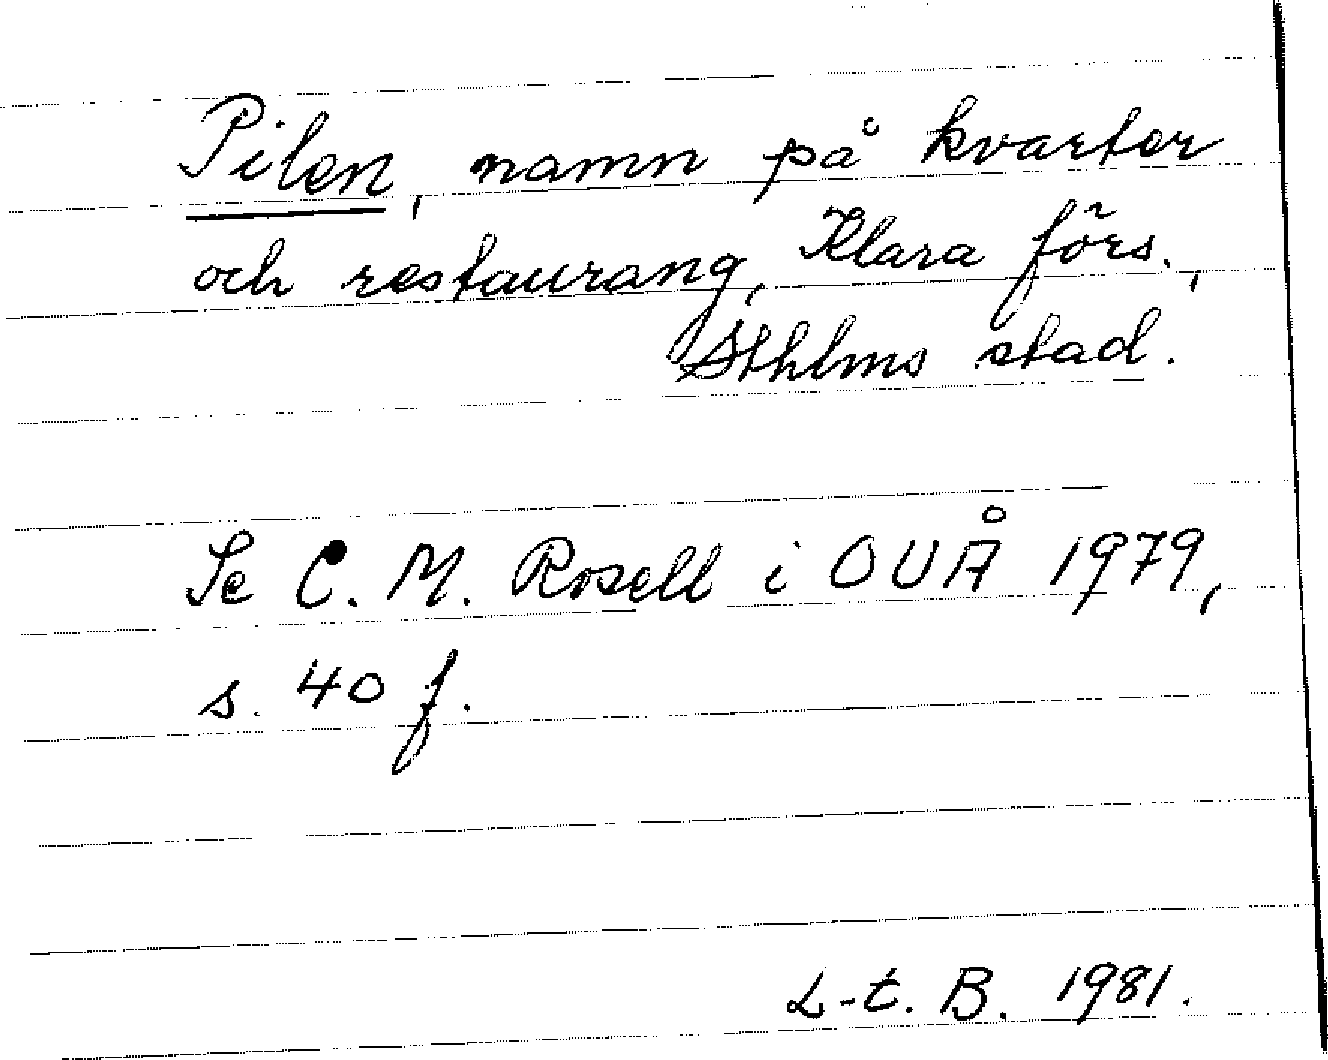 Pilen, namn på kvarter
och restaurang, Klara förs.,
Sthlms stad.
Se C. M. Rosell i OUÅ 1979,
s. 40 f.
L-t. B. 1981.